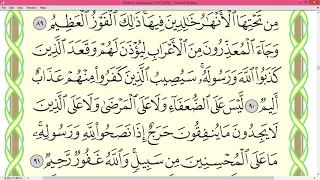 مِن تَحْتِهَا الْأَنْهَارُ خَالِدِينَ فِيهَا ذَٰلِكَ الْفَوْزُ الْعَظِيمُ
٨٩ وَجَاءَ الْمُعَذِّرُونَ مِنَ الْأَعْرَابِ لِيُؤْذَنَ لَهُمْ وَقَعَدَ الَّذِينَ
كَذَبُوا اللَّهَ وَرَسُولَهُ سَيُصِيبُ الَّذِينَ كَفَرُوا مِنْهُمْ عَذَابٌ
أَلِيمٌ ٩٠ لَّيْسَ عَلَى الضُّعَفَاءِ وَلَا عَلَى الْمَرْضَىٰ وَلَا عَلَى الَّذِينَ
لَا يَجِدُونَ مَا يُنفِقُونَ حَرَجٌ إِذَا نَصَحُوا لِلَّهِ وَرَسُولِهِ
مَا عَلَى الْمُحْسِنِينَ مِن سَبِيلٍ وَاللَّهُ غَفُورٌ رَّحِيمٌ ٩١